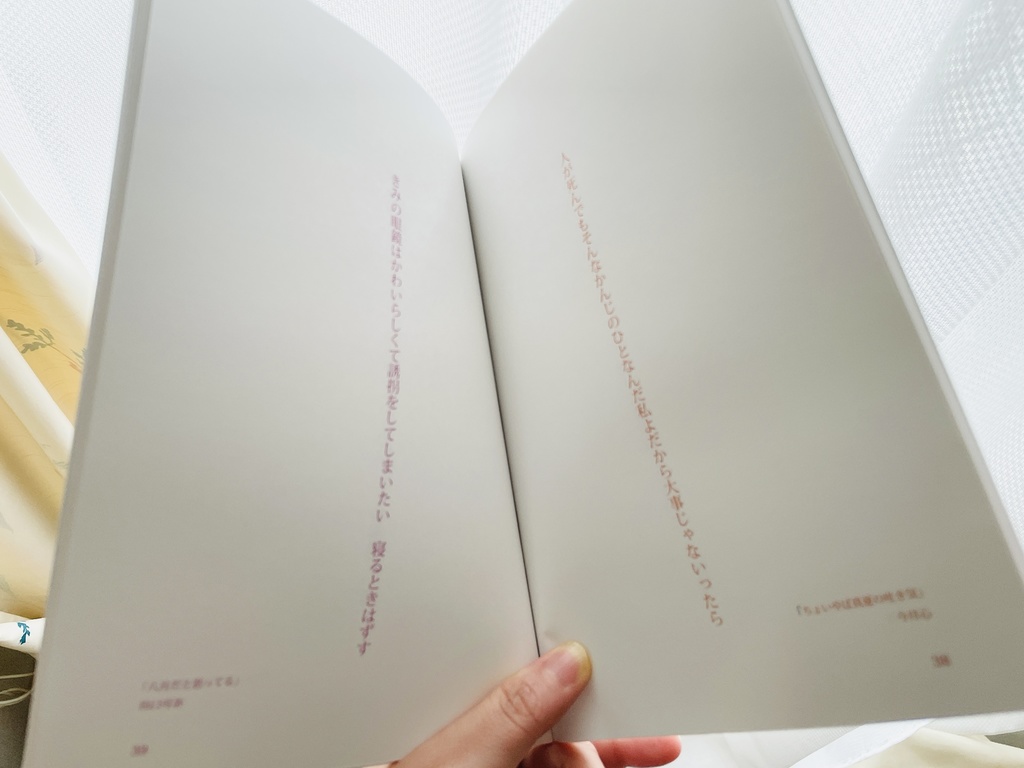 人が死んでもそんなかんじのひとなんだ私よだから大事じゃないったら
38
きみの眼鏡はかわいらしくて誘拐をしてしまいたい　寝るときはずす
39